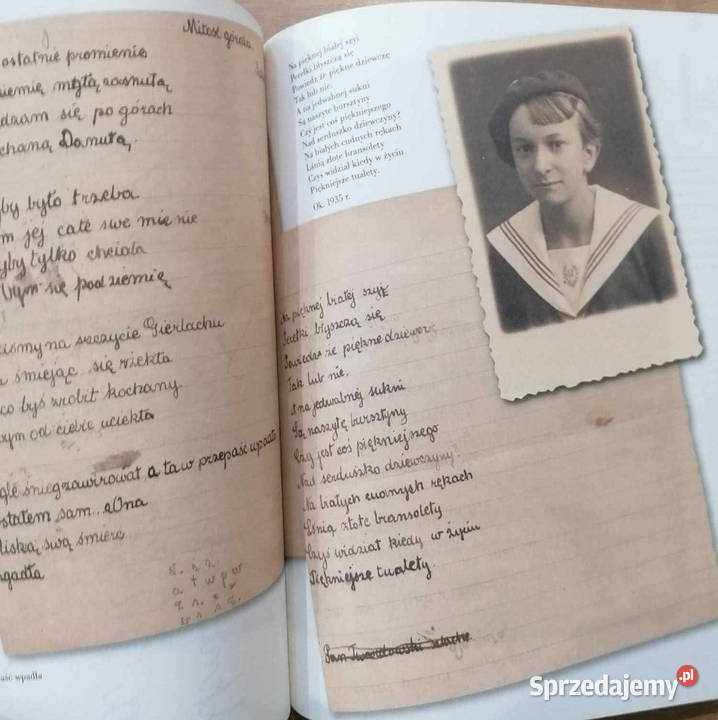 Miłość górala
ostatnie promienie
mgłą zasnutą
się po górach
Danutą
było trzeba
jej całe swe mienie
tylko chciała
się pod ziemię
na szczycie Gierlachu
śmiejąc się rzekła
co byś zrobił kochany
od ciebie uciekła
śnieg zawirował a ta w przepaść wpadła
sam
swą śmierć
wpadła
Na pięknej białej szyi
Perełki błyszczą się
Powiedz że piękne dziewczę
Tak lub nie.
A na jedwabnej sukni
Są naszyte bursztyny
Czy jest coś piękniejszego
Nad serduszko dziewczyny?
Na białych cudnych rękach
Lśnią złote bransolety
Czyś widział kiedy w życiu
Piękniejsze tualety.
Ok. 1935 r.
Na pięknej białej szyi
Perełki błyszczą się
Powiedz że piękne dziewczę
Tak lub nie.
A na jedwabnej sukni
Są naszyte bursztyny
Czy jest coś piękniejszego
Nad serduszko dziewczyny?
Na białych cudnych rękach
Lśnią złote bransolety
Czyś widział kiedy w życiu
Piękniejsze tualety.
Sprzedajemy.pl